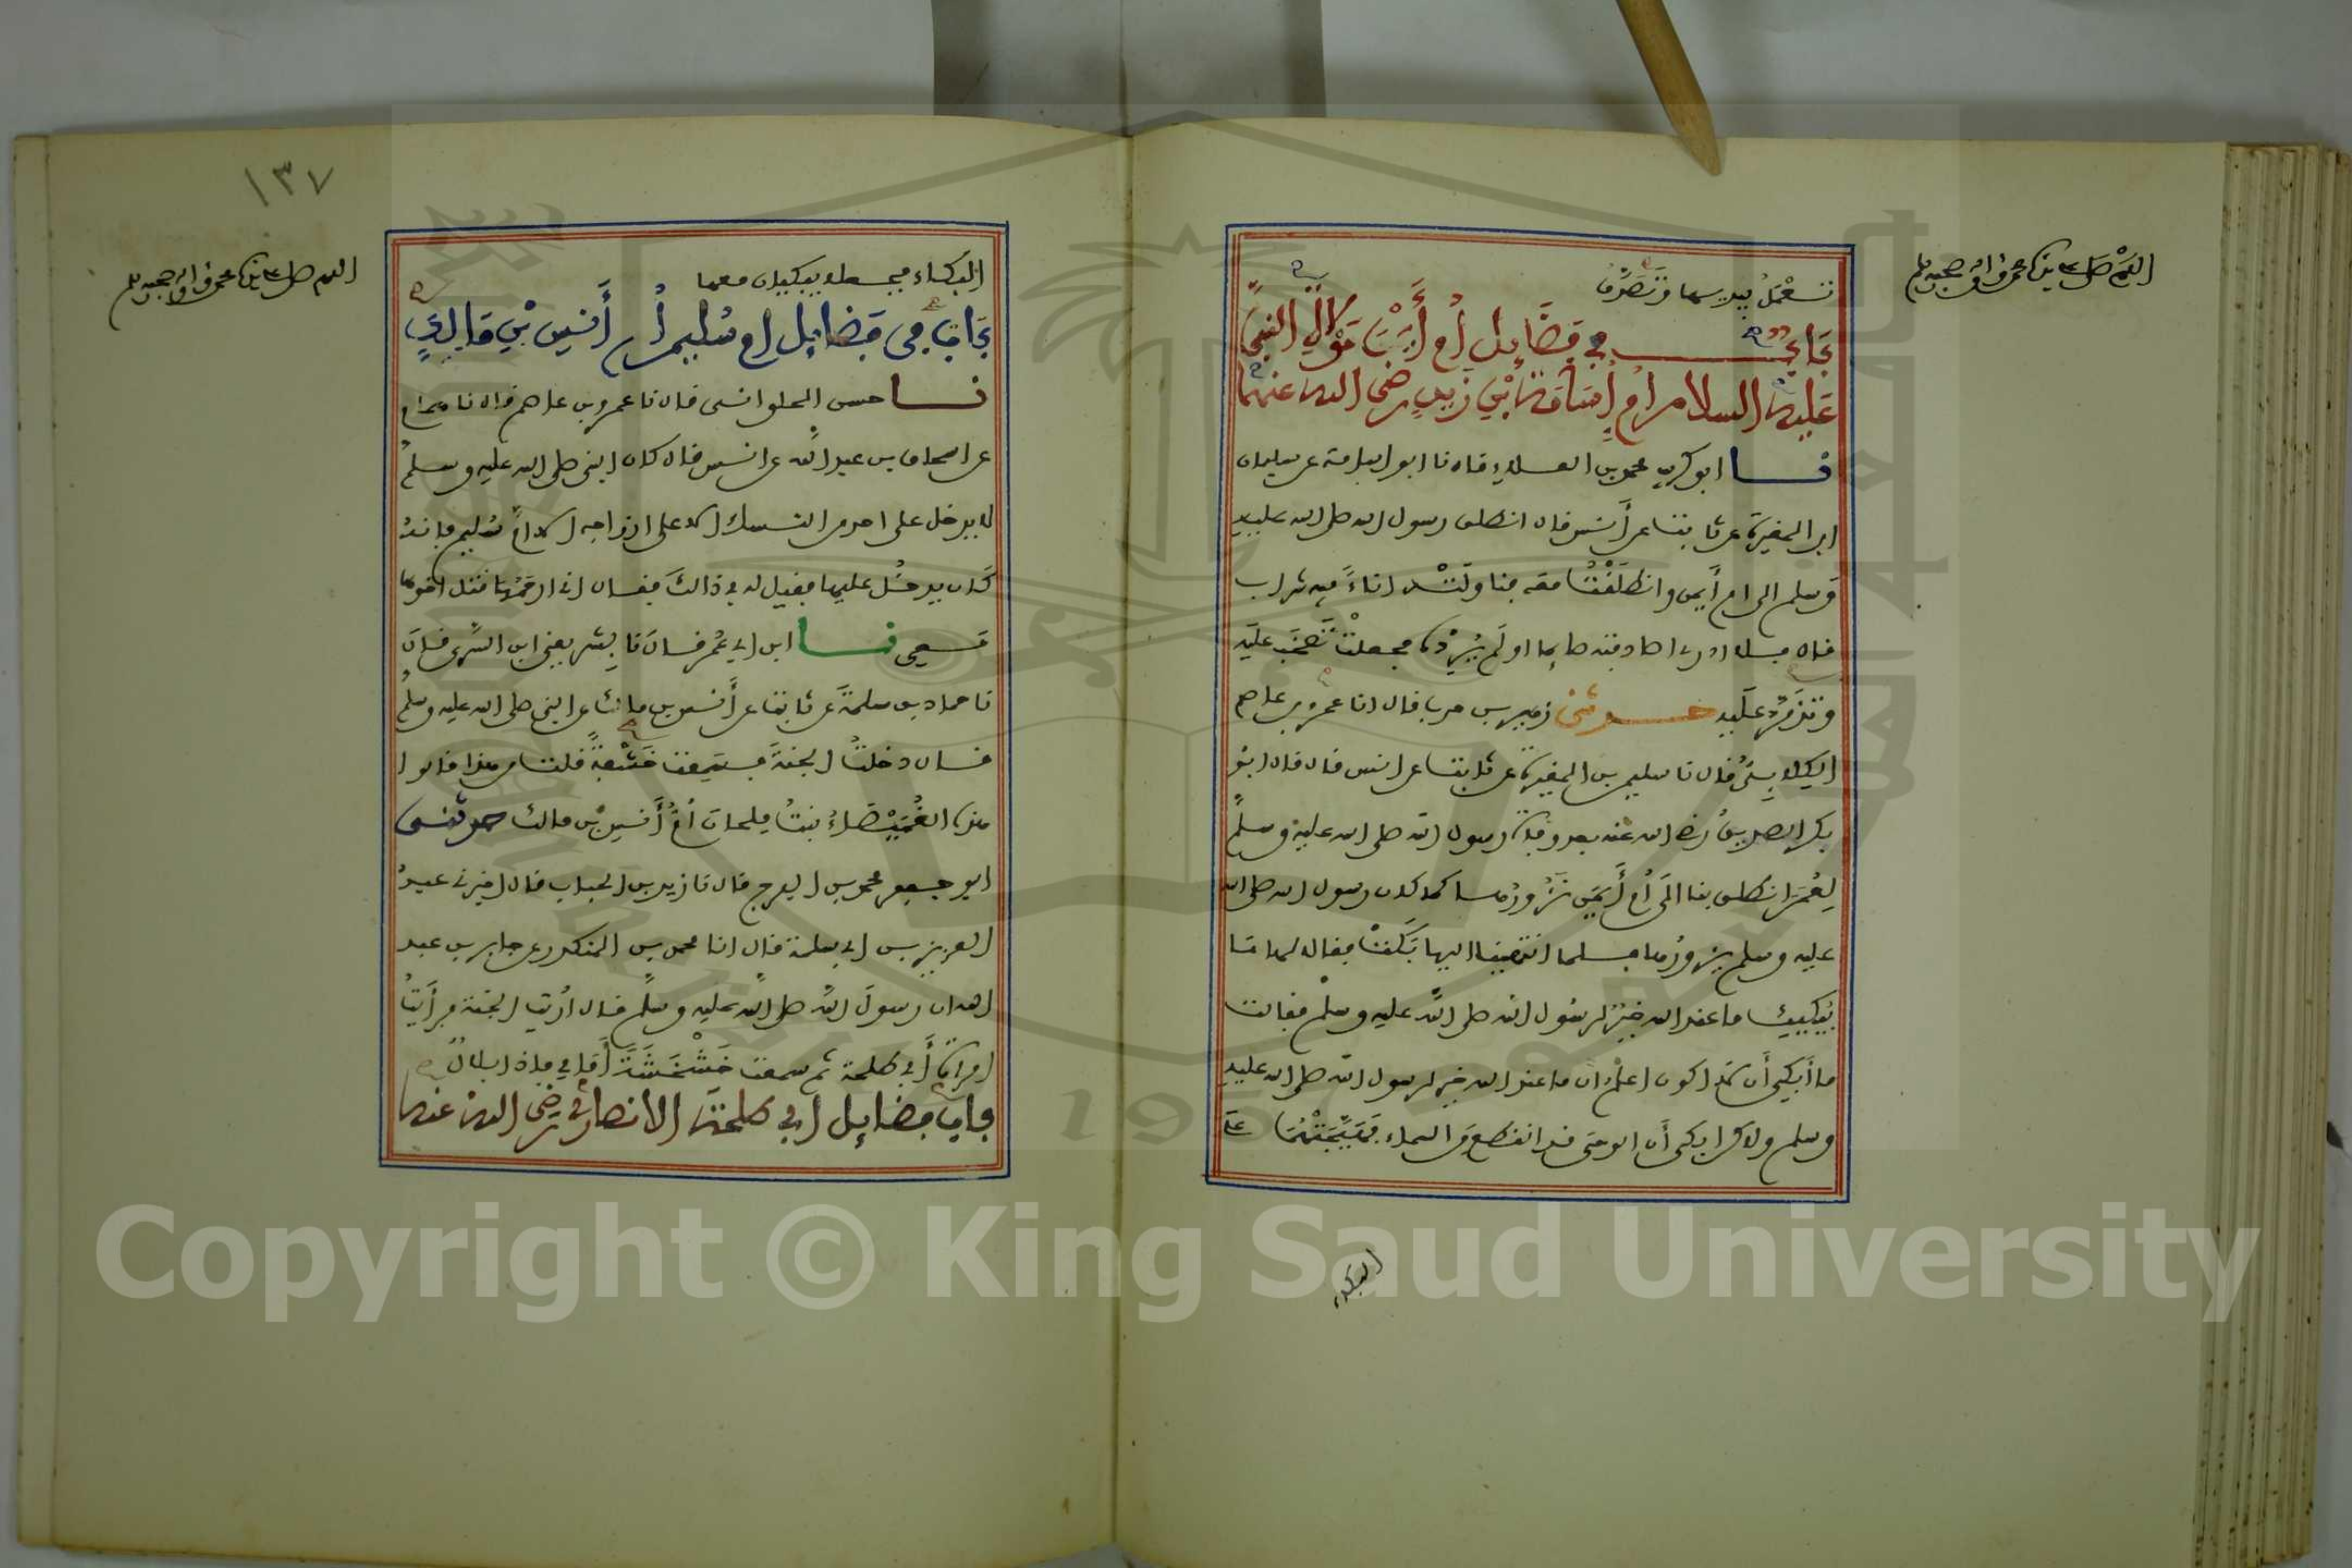 اللهم صل على سيدنا محمد وآله وصحبه وسلم
تعمل بيديها وتصدق
باب في فضائل أم أيمن موالاة النبي
عليه السلام أم أسامة بن زيد رضي الله عنهما
نا أبو كريب محمد بن العلاء قال نا أبو أسامة عن سليمان
ابن المغيرة عن ثابت عن أنس قال انطلق رسول الله صلى الله عليه
وسلم الى أم أيمن وانطلقت معه فناولته اناء فيه شراب
قال فلا أدري أصادفته صايما او لم يرده فجعلت تصخب عليه
وتذمر عليه حدثني زهير بن حرب قال انا عمرو بن عاصم
الكلابي قال نا سليمن بن المغيرة عن ثابت عن انس قال قال ابو
بكر الصديق رضي الله عنه بعد وفاة رسول الله صلى الله عليه وسلم
لعمر انطلق بنا الى أم أيمن نزورها كما كان رسول الله صلى الله
عليه وسلم يزورها فلما انتهينا اليها بكت فقالا لها ما
يبكيك ما عند الله خير لرسول الله صلى الله عليه وسلم فقالت
ما أبكي أن لا اكون اعلم ان ما عند الله خير لرسول الله صلى الله عليه
وسلم ولاكن ابكى أن الوحي قد انقطع من السماء فهيجتهما على
البكاء
١٣٧
اللهم صل على سيدنا محمد وآله وصحبه وسلم
البكاء فجعلا يبكيان معها
باب في فضايل ام سليم أم أنس بن مالك
نا حسن الحلواني قال نا عمرو بن عاصم قال نا همام
عن اسحاق بن عبد الله عن انس قال كان النبي صلى الله عليه وسلم
لا يدخل على احد من النساء الا على ازواجه الا ام سليم فانه
كان يدخل عليها فقيل له في ذالك فقال اني ارحمها قتل اخوها
معي نا ابن ابي عمر قال نا بشر يعني ابن السري قال
نا حماد بن سلمة عن ثابت عن أنس بن مالك عن النبي صلى الله عليه وسلم
قال دخلت الجنة فسمعت خشفة فقلت من هذا قالوا
هذه الغميصاء بنت ملحان أم أنس بن مالك حدثني
ابو جعفر محمد بن الفرج قال نا زيد بن الحباب قال اخبرني عبد
العزيز بن ابي سلمة قال انا محمد بن المنكدر عن جابر بن عبد
الله ان رسول الله صلى الله عليه وسلم قال أريت الجنة فرأيت
امرأة أبي طلحة ثم سمعت خشخشة أمامي فاذا بلال
باب فضايل ابي طلحة الانصاري رضي الله عنه
Copyright © King Saud University